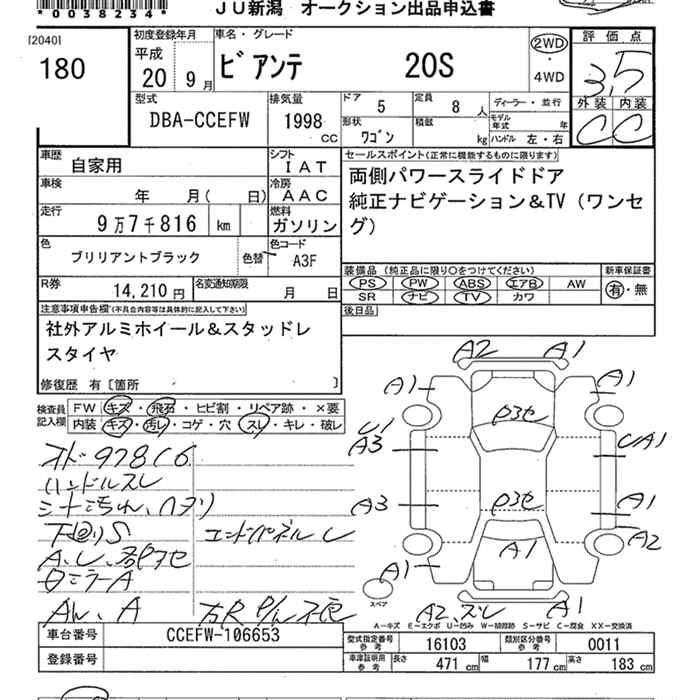 *0038234*
JU新潟 オークション出品申込書
[2040]
180
初度登録年月
平成
20 9月
車名・グレード
ビアンテ 20S
2WD
・
4WD
評価点
3.5
外装 内装
C C
型式
DBA-CCEFW
排気量
1998 CC
ドア 5
定員 8 人
形状 ワゴン
積載 kg
ディーラー・並行
モデル年式 年
ハンドル 左・右
車歴 自家用
シフト IAT
車検 年 月( 日)
冷房 AAC
走行 9万7千816 km
燃料 ガソリン
色 ブリリアントブラック 色替
色コード A3F
R券 14,210円
名変通知期限 月 日
セールスポイント(正常に機能するものに限ります)
両側パワースライドドア
純正ナビゲーション&TV(ワンセ
グ)
装備品(純正品に限り○をつけてください)
PS PW ABS エアB AW
SR ナビ TV カワ
新車保証書
有・無
後日品
注意事項申告欄(不具合内容等は具体的に記入して下さい)
社外アルミホイール&スタッドレ
スタイヤ
修復歴 有〔箇所 〕
検査員記入欄
FW キズ・飛石・ヒビ割・リペア跡・×要
内装 キズ・汚レ・コゲ・穴・スレ・キレ・破レ
ハンドルスレ
下回りS
エンドパネルU
A2
A1 A1
A3 UA1
A3 A1
A2
A1 A1
A1
スペア
A-キズ E-エクボ U-凹み W-補修跡 S-サビ C-腐食 XX-交換済
車台番号 CCEFW-106653
登録番号
型式指定番号 参考 16103
類別区分番号 参考 0011
車庫証明用 参考 長さ 471 cm 幅 177 cm 高さ 183 cm